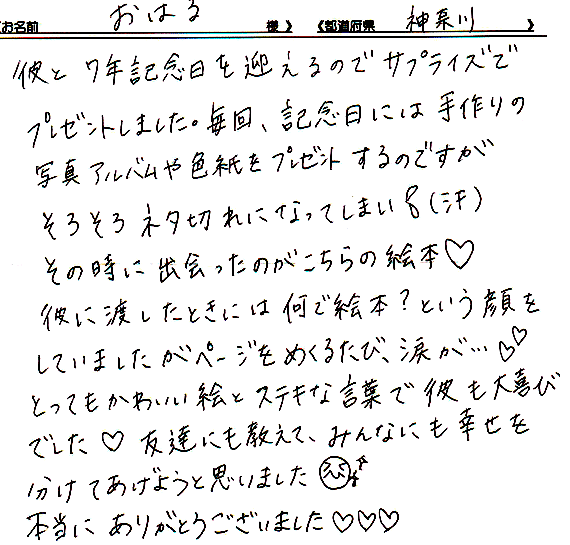 お名前 おはる 様 》 《都道府県 神奈川 》
彼と 7年記念日を迎えるので サプライズで
プレゼントしました。毎回、記念日には 手作りの
写真アルバムや色紙をプレゼントするのですが
そろそろ ネタ切れになってしまい (汗)
その時に 出会ったのがこちらの絵本♡
彼に渡したときには 何で絵本？という顔を
していましたがページをめくるたび、涙が…♡♡
とってもかわいい絵とステキな言葉で 彼も大喜び
でした♡ 友達にも教えて、みんなにも幸せを
分けてあげようと思いました
本当に ありがとうございました♡♡♡